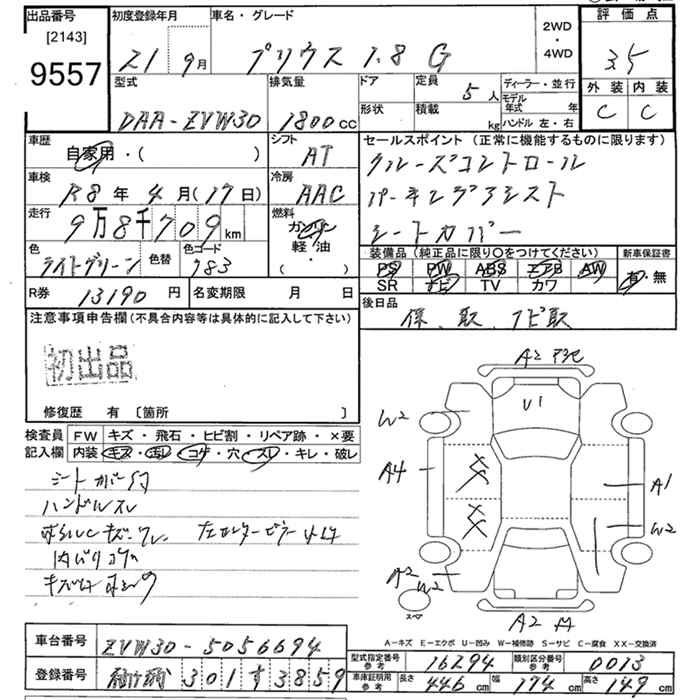 出品番号 [2143] 9557
初度登録年月 21 9月
車名・グレード プリウス 1.8 G
2WD・4WD
評価点 3.5
外装 C 内装 C
型式 DAA-ZVW30
排気量 1800cc
ドア
形状
定員 5人
積載 kg
ディーラー・並行
モデル年式 年
ハンドル 左・右
車歴 自家用・( )
シフト AT
車検 R8年4月(17日)
冷房 AAC
走行 9万8千709km
燃料 ガソリン 軽油・( )
色 ライトグリーン 色替
色コード 783
R券 13190円
名変期限 月 日
セールスポイント(正常に機能するものに限ります)
クルーズコントロール
パーキングアシスト
シートカバー
装備品(純正品に限り○をつけてください)
PS PW ABS エアB AW
SR ナビ TV カワ
新車保証書 有・無
後日品
保、取、ナビ取
注意事項申告欄(不具合内容等は具体的に記入して下さい)
初出品
修復歴 有〔箇所 〕
検査員記入欄
FW キズ・飛石・ヒビ割・リペア跡・×要
内装 キズ・汚レ・コゲ・穴・スレ・キレ・破レ
シートカバー付
ハンドルスレ
内バリコゲ
A2
U1
W2
A4
A1
W2
A2
W2
スペア
A2
A-キズ E-エクボ U-凹み W-補修跡 S-サビ C-腐食 XX-交換済
車台番号 ZVW30-5056694
登録番号 301す3859
型式指定番号参考 16294
類別区分番号参考 0013
車庫証明用参考 長さ 446cm 幅 174cm 高さ 149cm